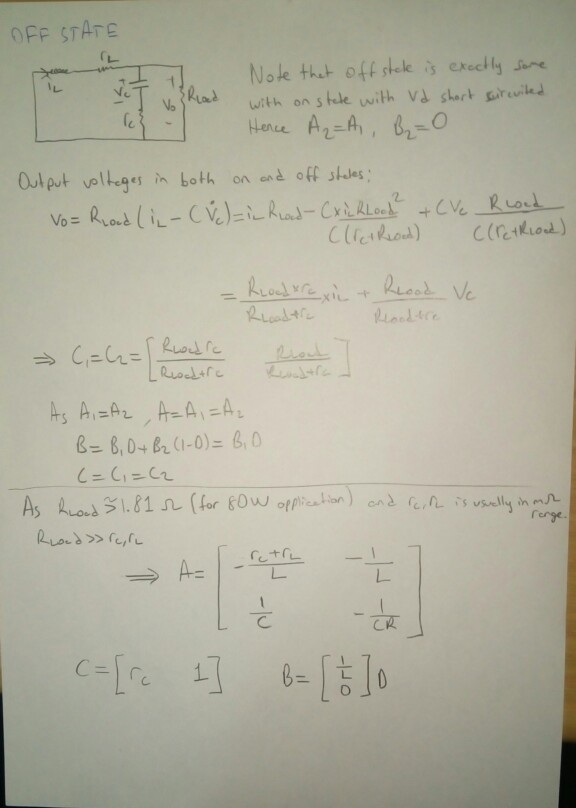 OFF STATE
rL
iL
+ Vc -
rc
+ Vo -
RLoad
Note that off state is exactly same
with on state with Vd short circuited
Hence A2=A1, B2=0
Output voltages in both on and off states:
Vo= RLoad (iL - C V̇c) = iL RLoad - (C x iL RLoad²)/(C(rc+RLoad)) + C Vc RLoad/(C(rc+RLoad))
= (RLoad x rc)/(RLoad+rc) x iL + RLoad/(RLoad+rc) Vc
⇒ C1=C2= [ RLoad rc/(RLoad+rc)   RLoad/(RLoad+rc) ]
As A1=A2, A=A1=A2
B= B1D+B2(1-D)= B1D
C= C1=C2
As RLoad ≅ 1.81 Ω (for 80W application) and rc,rL is usually in mΩ
range.
RLoad >> rc,rL
⇒ A= [ -(rc+rL)/L   -1/L
1/C   -1/(CR) ]
C= [rc   1]   B= [1/L
0] D